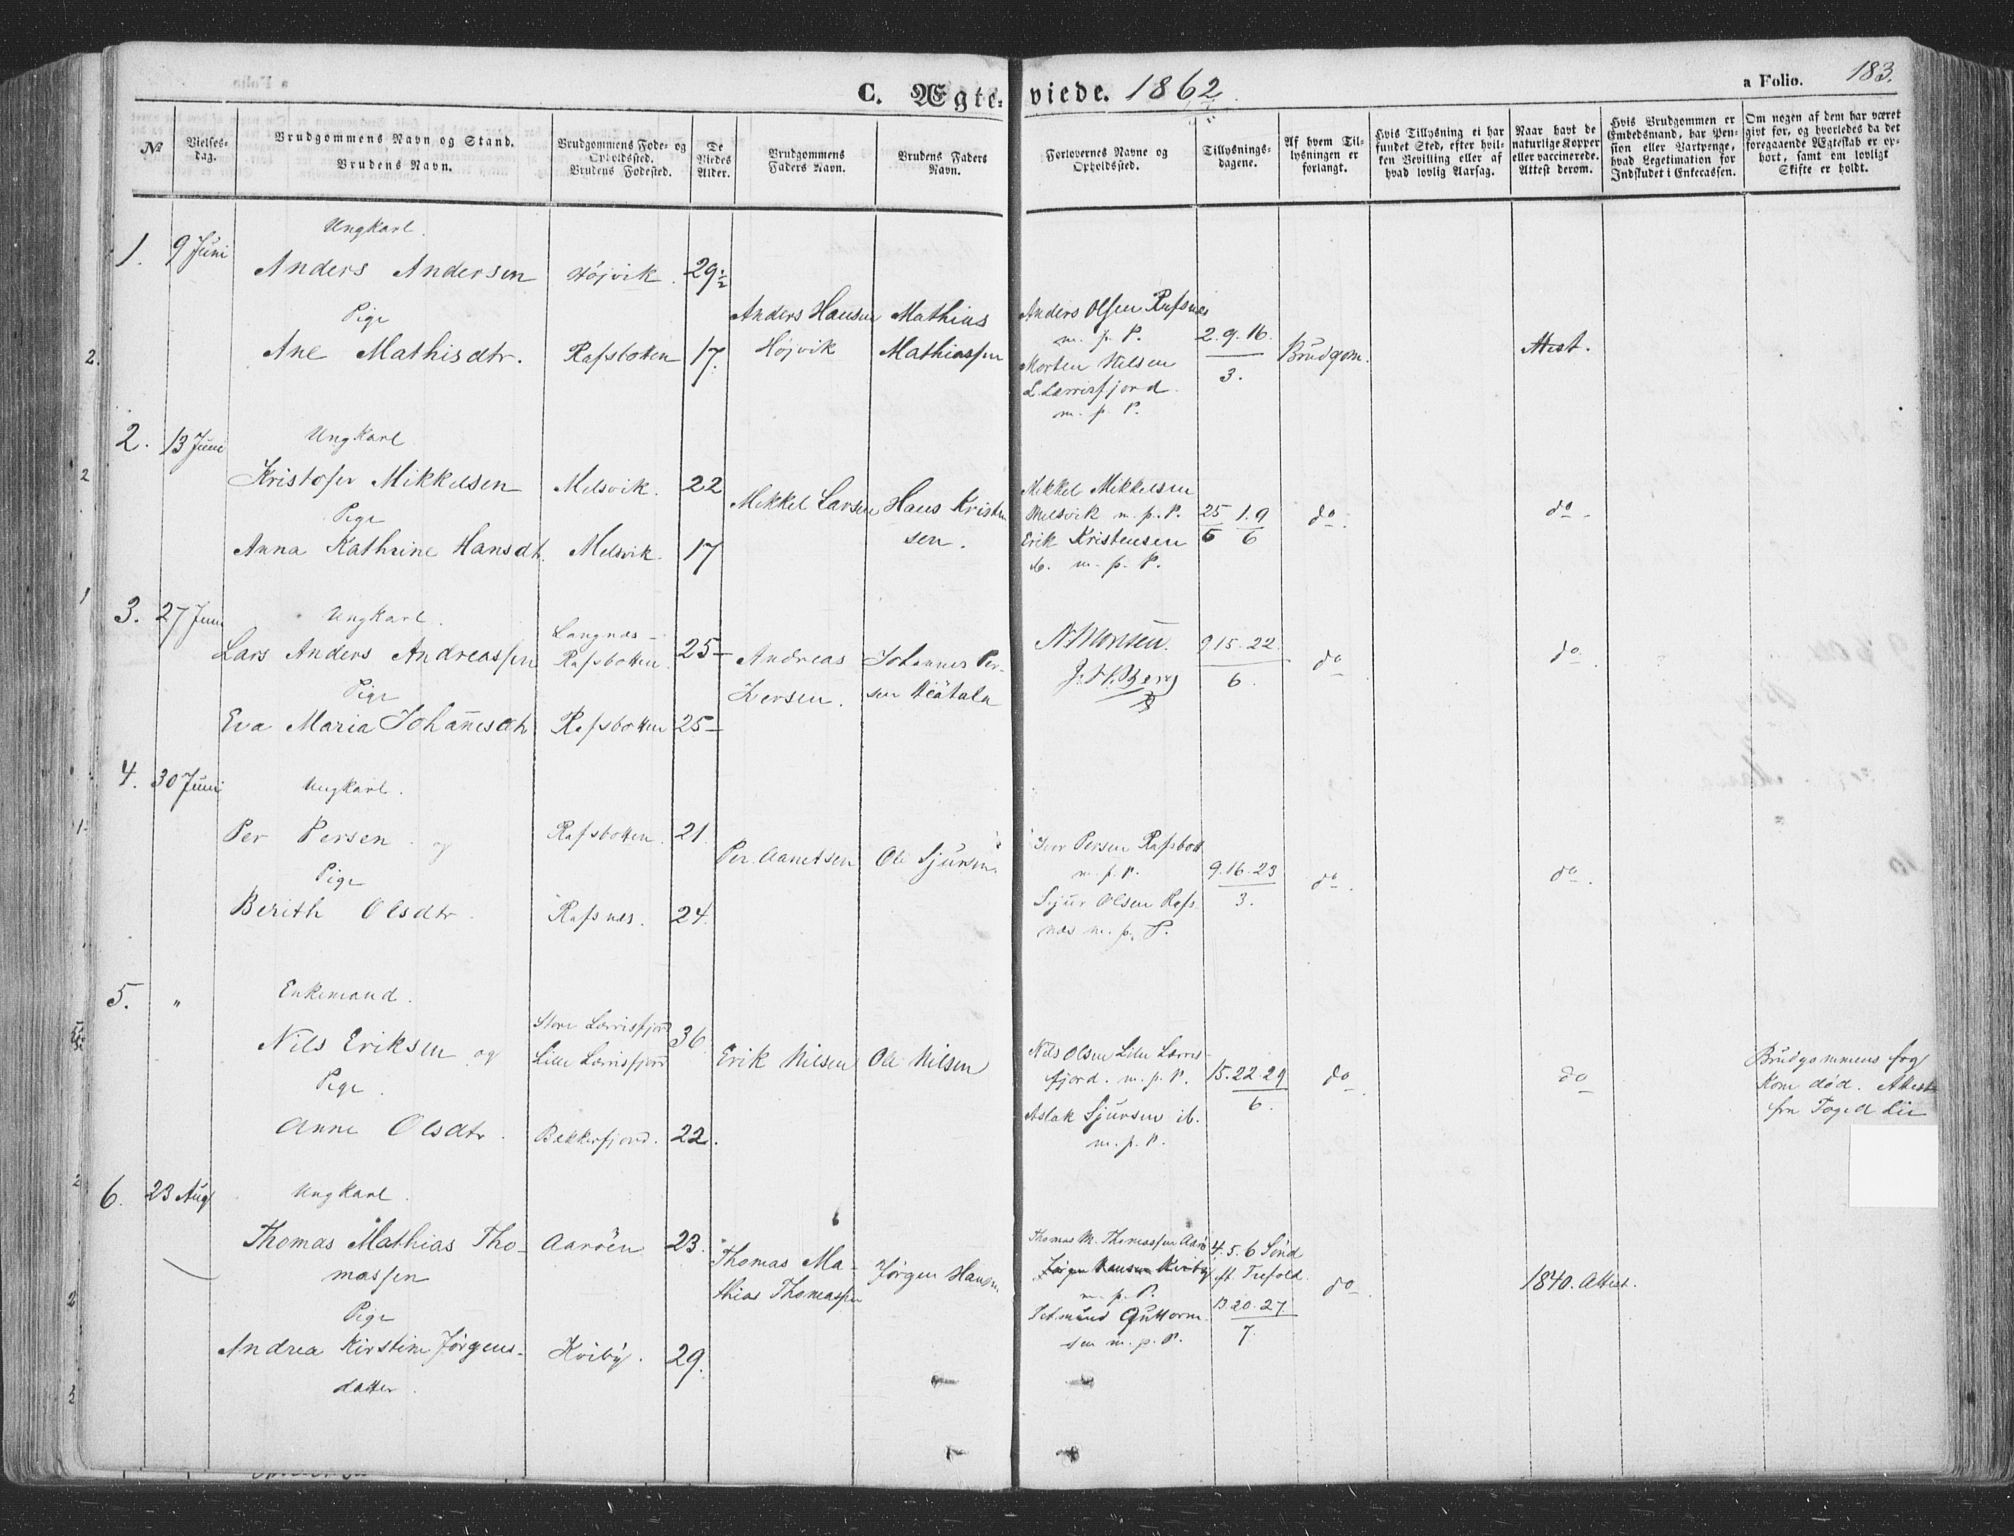 C. Ægteviede. 1862
a Folio. 183.
№
Vielsesdag.
Brudgommens Navn og Stand.
Brudens Navn.
Brudgommens Føde- og Opholdssted.
Brudens Fødested.
De Viedes Alder.
Brudgommens Faders Navn.
Brudens Faders Navn.
Forlovernes Navne og Opholdssted.
Tillysningsdagene.
Af hvem Tillysningen er forlangt.
Hvis Tillysning ei har fundet Sted, efter hvilken Bevilling eller af hvad lovlig Aarsag.
Naar havt de naturlige Kopper eller vaccinerede. Attest derom.
Hvis Brudgommen er Embedsmand, har Pension eller Vartpenge, hvad Legetimation for Indskudet i Enkecassen.
Om nogen af dem har været givt før, og hvorledes da det foregaaende Ægteskab er ophørt, samt om lovligt Skifte er holdt.
1. 9 Juni
Ungkarl.
Anders Andersen Højvik. 29½
Pige
Ane Mathisdtr. Rafsbotten 17.
Anders Hansen Højvik
Mathias Mathiassen
Anders Olsen Rafsnes
m. p. P.
Morten Nilsen
L. Lærrisfjord.
m. p. P.
2. 9. 16.
3.
Brudgom.
Attest.
2. 13 Juni
Ungkarl
Kristofer Mikkelsen Melsvik. 22
Pige
Anna Kathrine Hansdt. Melsvik. 17
Mikkel Larsen
Hans Kristensen.
Mikkel Mikkelsen
Melsvik m. p. P.
Erik Kristensen
ib. m. p. P.
25 1. 9
5 6
do.
do.
3. 27 Juni
Ungkarl.
Lars Anders Andreassen Langnæs - Rafsbotten. 25
Pige
Eva Maria Johanesdt. Rafsbotten 25
Andreas
Iversen.
Johannes Persen
N. Monsen.
J. H. Berg
9 15. 22.
6.
do
do.
4. 30 Juni
Ungkarl.
Per Persen. og Rafsbotten. 21.
Pige
Berith Olsdtr. Rafsnes. 24.
Per Aanetsen
Ole Sjursen.
Iver Persen Rafsbott
m. p. P.
Sjur Olsen Rafs
næs m. p. P.
9. 16. 23
3.
do.
do.
5. "
Enkemand.
Nils Eriksen og Store Lærrisfjord Lille Lærrisfjord 36
Pige
Anne Olsdtr. Bekkerfjord. 22.
Erik Nilsen
Ole Nilsen
Nils Olsen Lille Lærris-
fjord. m. p. P.
Aslak Sjursen ib.
m. p. P.
15. 22. 29
6.
do
do
Brudgommens før
Kone død. Attest
fra Foged Lie
6. 23 Aug
Ungkarl.
Thomas Mathias Tho- Aarøen 23.
massen
Pige
Andrea Kirstine Jørgens- Kviby. 29.
datter.
Thomas Ma-
thias Thomassen
Jørgen Hansen
Thomas M. Thomassen Aarø
Jørgen Hansen Kviby
m. p. P.
Guttorm-
sen m. p. P.
4. 5. 6 Sønd
ft. Trefold.
13. 20. 27
7.
do
1840. Attest.